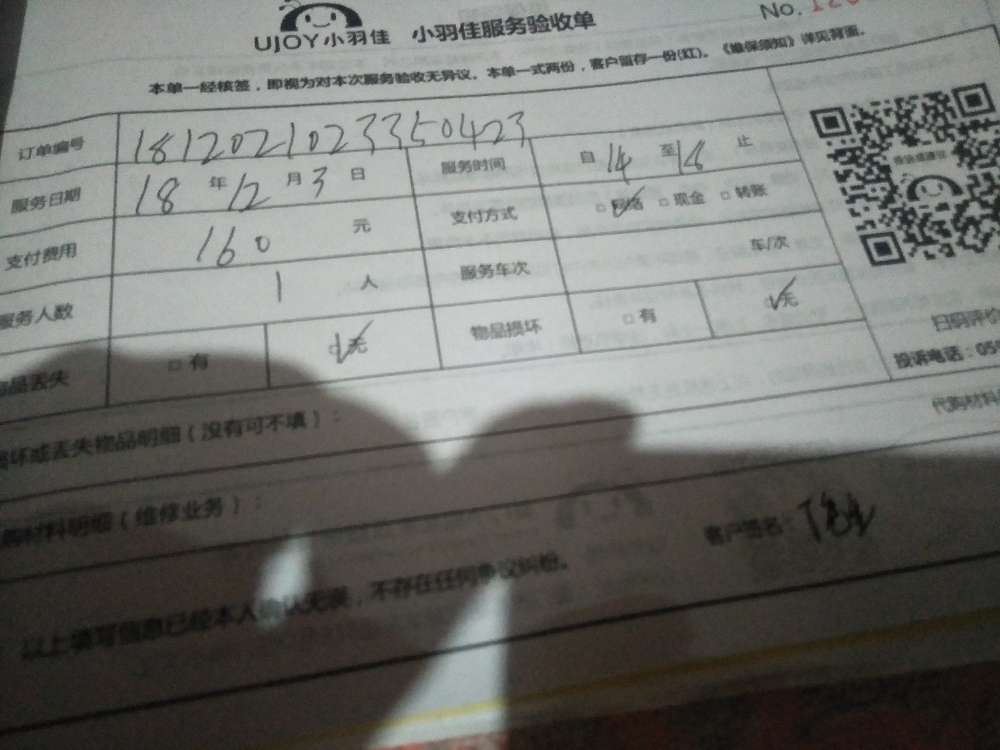 UJOY小羽佳 小羽佳服务验收单 No.
本单一经核签，即视为对本次服务验收无异议。本单一式两份，客户留存一份(红)。《维保须知》详见背面。
订单编号 1812021023350423
服务日期 18 年 12 月 3 日 服务时间 自 14 至 18 止
支付费用 160 元 支付方式 □ 网络 □ 现金 □ 转账
服务人数 1 人 服务车次 车/次
品丢失 □ 有 无 物品损坏 □ 有 无
扫码评价
投诉电话：059
损坏或丢失物品明细（没有可不填）：
代购材料
购材料明细（维修业务）：
客户签名：
以上填写信息已经本人确认无误，不存在任何争议纠纷。